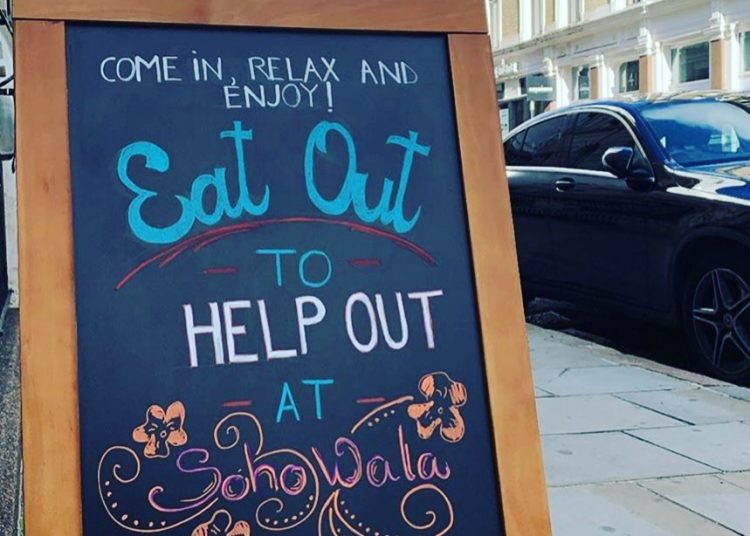 COME IN, RELAX AND
ENJOY!
Eat Out
TO
HELP OUT
AT
Soho Wala